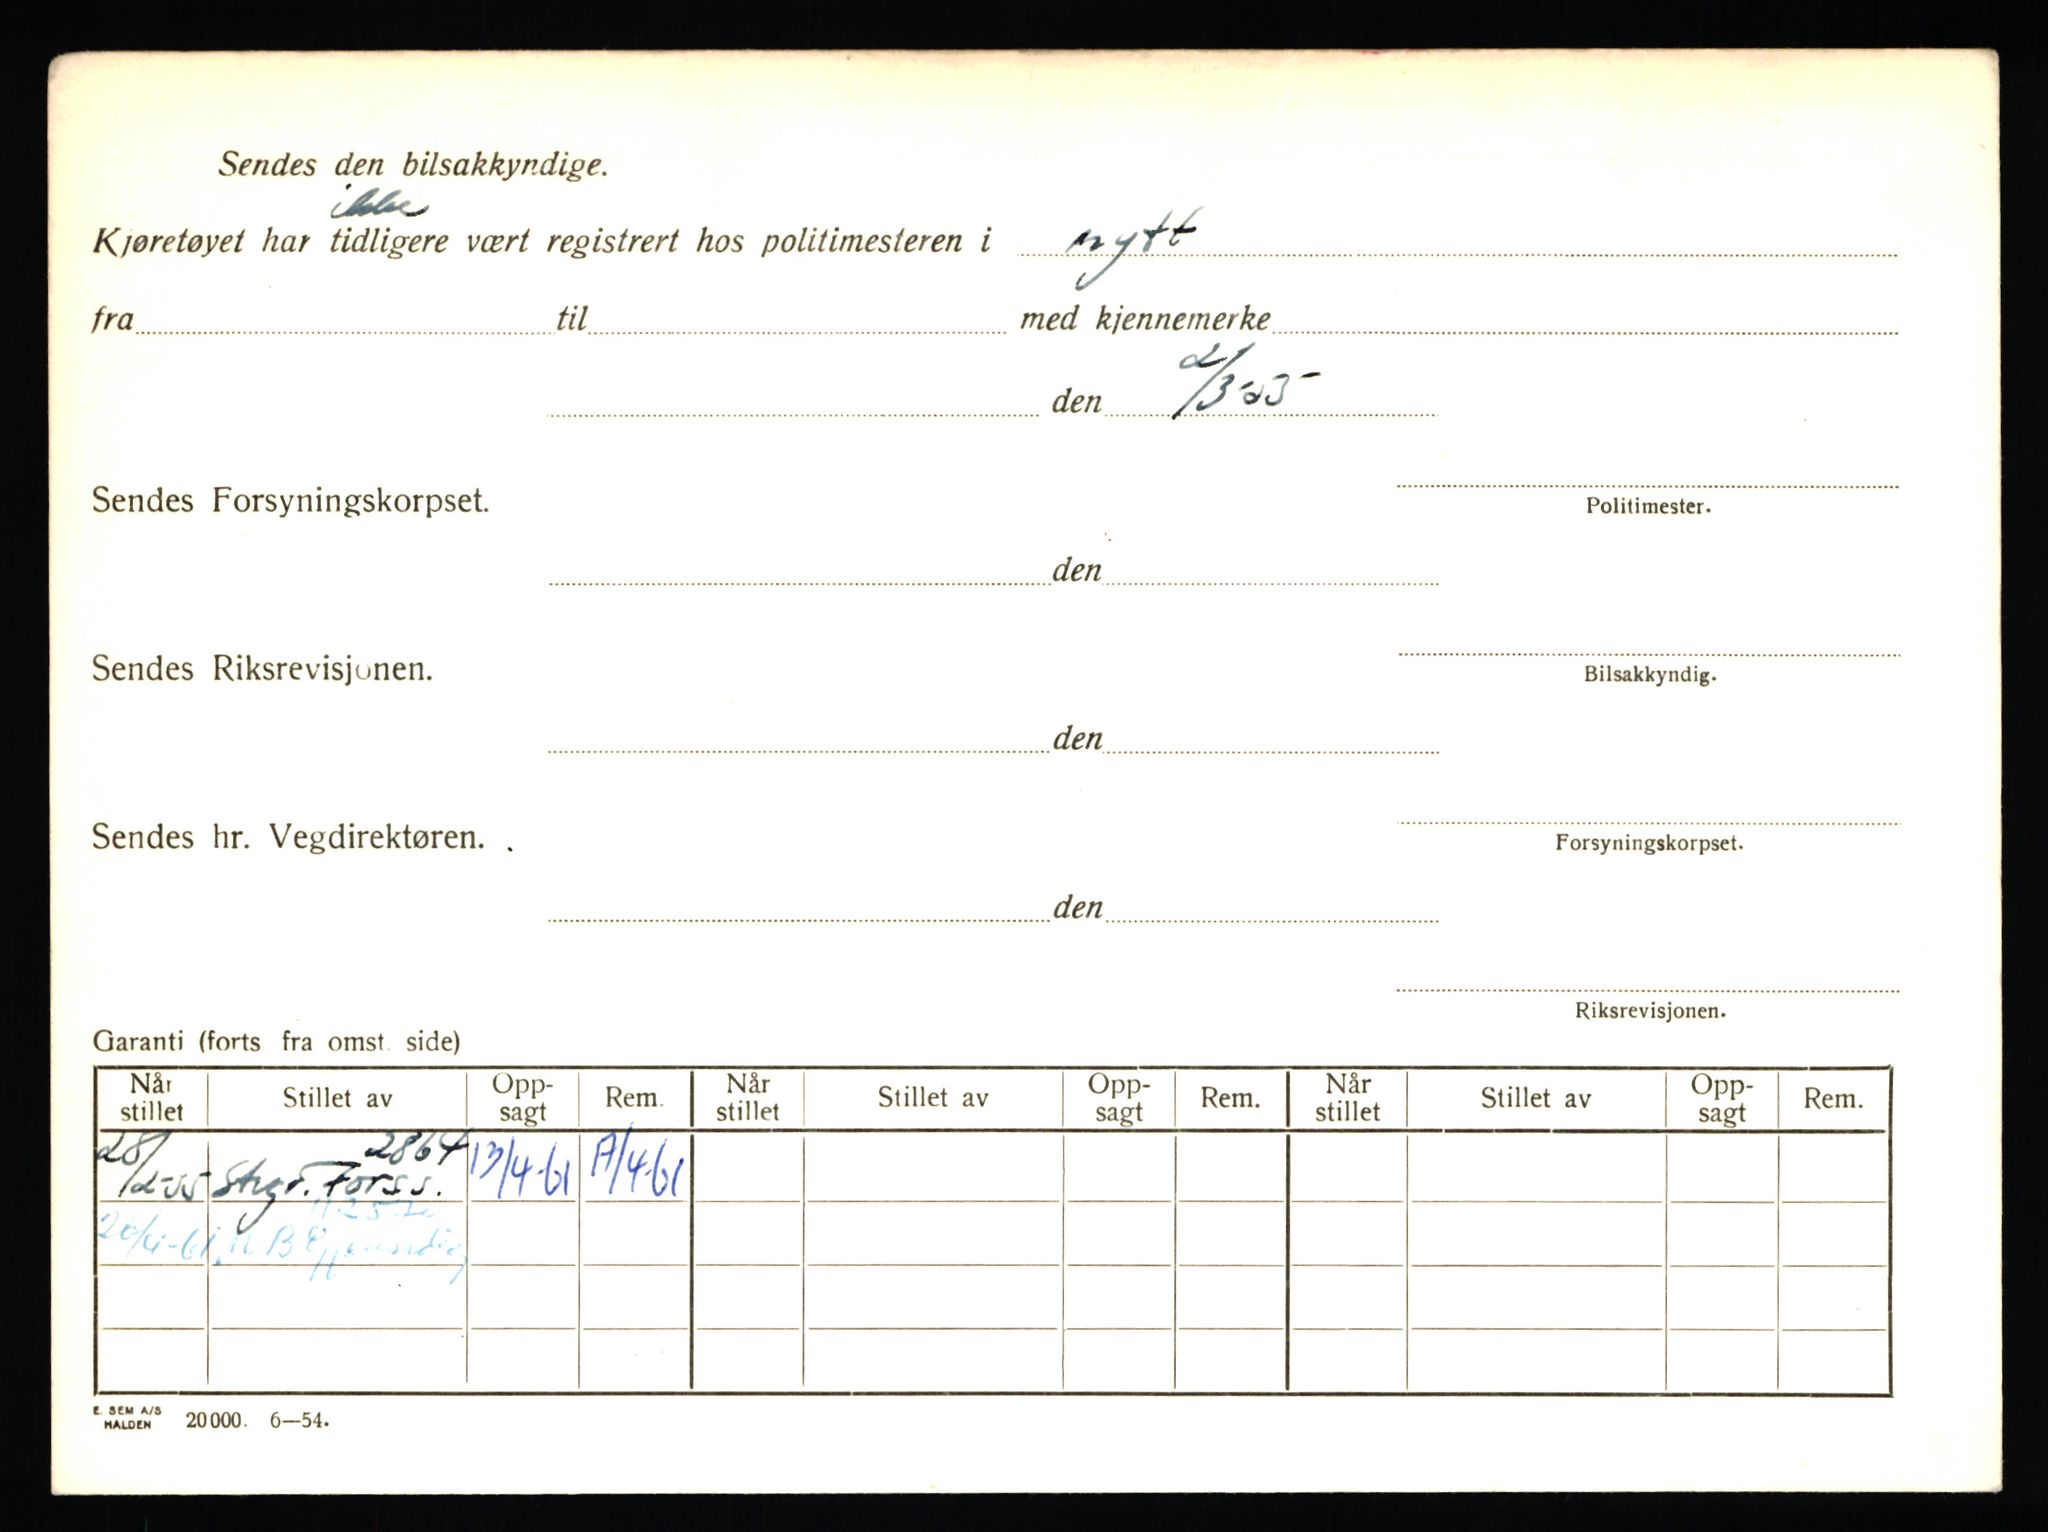 Sendes den bilsakkyndige.
ikke
Kjøretøyet har tidligere vært registrert hos politimesteren i nytt
fra til med kjennemerke
den 2/3-55
Sendes Forsyningskorpset.
Politimester.
den
Sendes Riksrevisjonen.
Bilsakkyndig.
den
Sendes hr. Vegdirektøren.
Forsyningskorpset.
den
Riksrevisjonen.
Garanti (forts fra omst. side)
Når stillet Stillet av Opp-sagt Rem. Når stillet Stillet av Opp-sagt Rem. Når stillet Stillet av Opp-sagt Rem.
28/2-55 2864 Forss. 13/4-61 /4-61
20/4-61
E. SEM A/S
HALDEN 20000. 6—54.